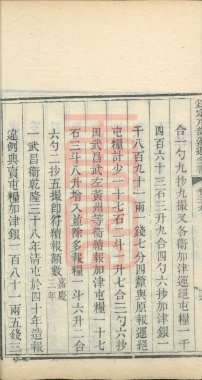 合一勺九抄九撮又各衞加津運絕屯糧二千
四百六十三石三升九合四勺六抄加津銀六
千八百九十一兩一錢七分四釐與原報運絕
屯糧計少一十七石二斗一升七合三勺六抄
因武昌武左黃州等衞續報加津屯糧一十七
石三斗八升增入並除多報糧一斗六升一合
六勺二抄五撮印符續報額數嘉慶三年
一武昌衞乾隆三十八年清屯於四十年造報
違例典賣屯糧加津銀一百八十一兩五錢三